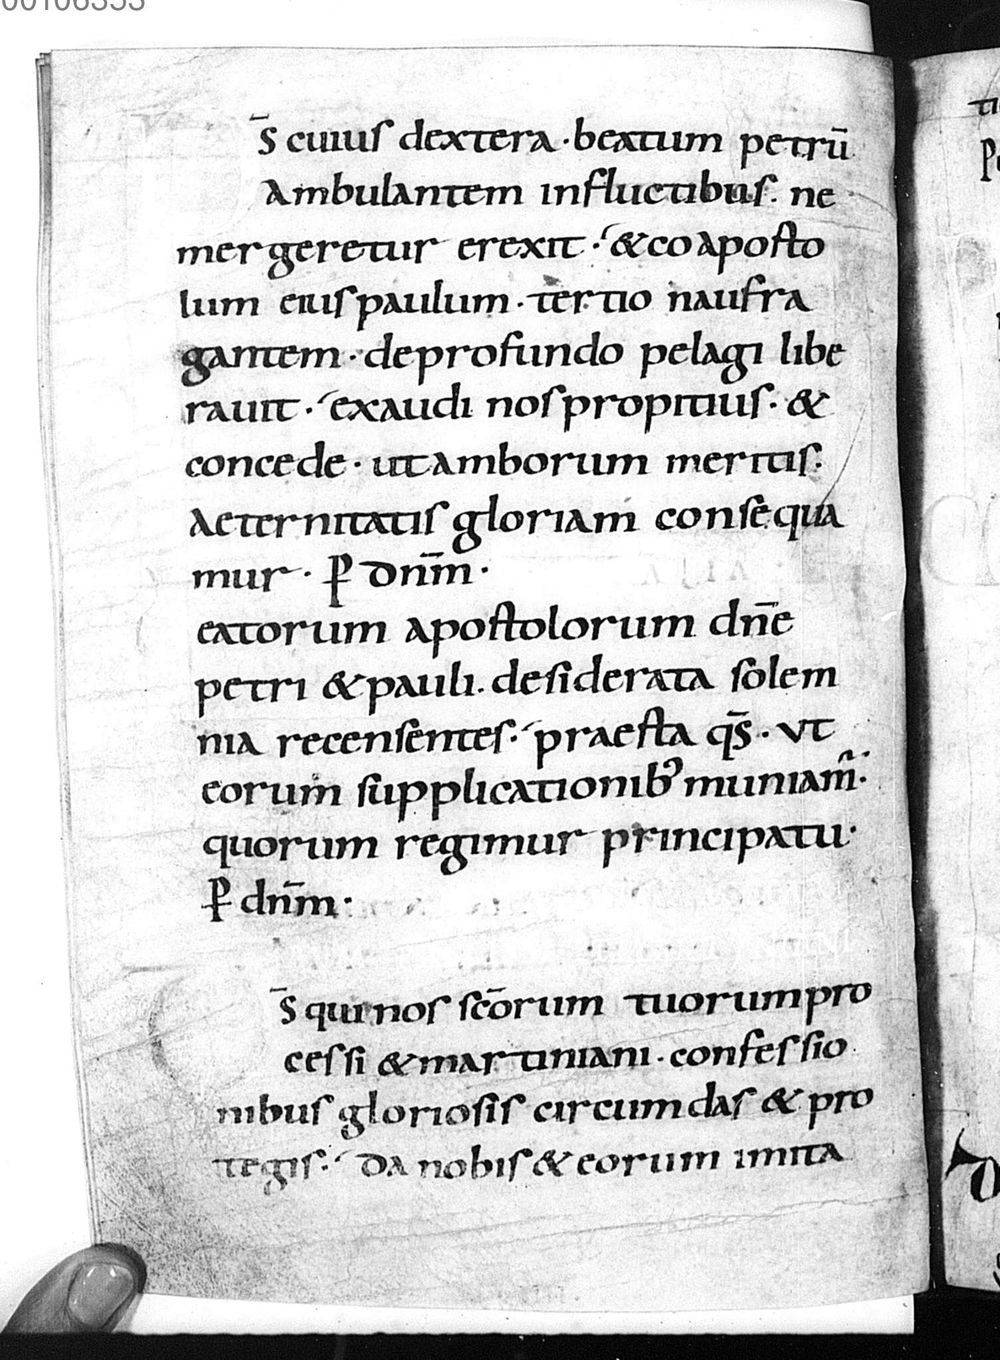 00106353
S̄ cuius dextera · beatum petrū
Ambulantem influctibus · ne
mergeretur erexit · & coaposto
lum eiuspaulum · tertio naufra
gantem · deprofundo pelagi libe
rauit · exaudi nospropitius · &
concede · utamborum meritis ·
Aeternitatis gloriam consequa
mur · ꝑ dnm̄ ·
eatorum apostolorum dn̄e
petri & pauli . desiderata solem
nia recensentes · praesta qs̄ · ut
eorum supplicationib; muniam̃ ·
quorum regimur principatu ·
ꝑ dnm̄ ·
S̄ qui nos sc̄orum tuorumpro
cessi & martiniani · confessio
nibus gloriosis circumdas & pro
tegis · Da nobis & eorum imita